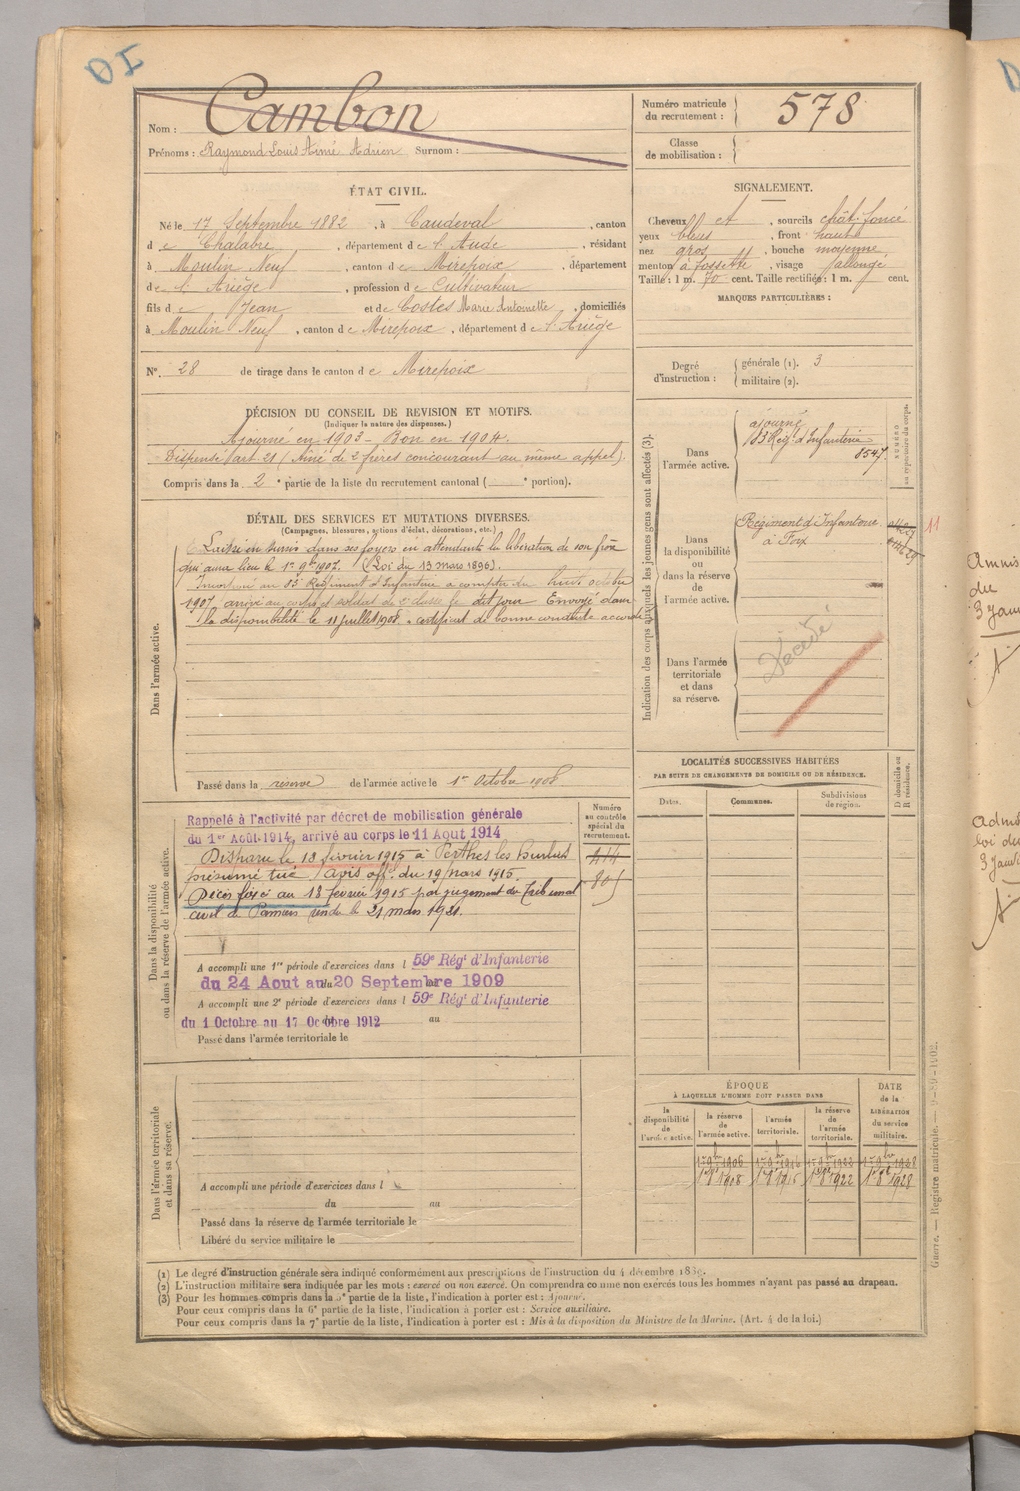 DI
Nom : Cambon
Prénoms : Raymond Louis Aimé Adrien Surnom :
Numéro matricule du recrutement : 578
Classe de mobilisation :
ÉTAT CIVIL.
Né le 17 Septembre 1882, à Caudeval, canton
de Chalabre, département de l'Aude, résidant
à Moulin Neuf, canton de Mirepoix, département
de l'Ariège, profession de Cultivateur
fils de Jean et de Costes Marie Antoinette, domiciliés
à Moulin Neuf, canton de Mirepoix, département de l'Ariège
N°. 28 de tirage dans le canton de Mirepoix
SIGNALEMENT.
Cheveux et, sourcils chât. foncé
yeux bleus, front haut
nez gros, bouche moyenne
menton à fossette, visage allongé
Taille : 1 m. 70 cent. Taille rectifiée : 1 m. cent.
MARQUES PARTICULIÈRES :
Degré d'instruction : générale (1). 3
militaire (2).
DÉCISION DU CONSEIL DE REVISION ET MOTIFS.
(Indiquer la nature des dispenses.)
Ajourné en 1903 - Bon en 1904.
Dispensé art 21 (Aîné de 2 frères concourant au même appel).
Compris dans la 2e partie de la liste du recrutement cantonal ( e portion).
DÉTAIL DES SERVICES ET MUTATIONS DIVERSES.
(Campagnes, blessures, actions d'éclat, décorations, etc.)
Dans l'armée active.
Laissé en sursis dans ses foyers en attendant la libération de son frère
qui aura lieu le 1er 9bre 1907. (Loi du 13 mars 1896).
Incorporé au 83e Régiment d'Infanterie à compter du huit octobre
1907 arrivé au corps et soldat de 2e classe le dit jour Envoyé dans
la disponibilité le 11 juillet 1908. certificat de bonne conduite accordé
Passé dans la réserve de l'armée active le 1er Octobre 1908
Indication des corps auxquels les jeunes gens sont affectés (3).
NUMÉRO au répertoire du corps.
Dans l'armée active.
ajourné
83 Reg. d'Infanterie
8547
Dans la disponibilité ou dans la réserve de l'armée active.
Régiment d'Infanterie
à Foix
11
Dans l'armée territoriale et dans sa réserve.
Décédé
LOCALITÉS SUCCESSIVES HABITÉES
PAR SUITE DE CHANGEMENTS DE DOMICILE OU DE RÉSIDENCE.
Dates. Communes. Subdivisions de région. D domicile ou R résidence.
Dans la disponibilité ou dans la réserve de l'armée active.
Numéro au contrôle spécial du recrutement.
Rappelé à l'activité par décret de mobilisation générale
du 1er Août 1914, arrivé au corps le 11 Août 1914
Disparu le 18 février 1915 à Perthes les Hurlus 444
présumé tué (avis offel. du 19 mars 1915. 805
Décès fixé au 18 février 1915 par jugement du Tribunal
civil de Pamiers rendu le 21 mars 1921.
A accompli une 1re période d'exercices dans l 59e Régt d'Infanterie
du 24 Aout au 20 Septembre 1909
A accompli une 2e période d'exercices dans l 59e Régt d'Infanterie
du 1 Octobre au 17 Octobre 1912 au
Passé dans l'armée territoriale le
ÉPOQUE
À LAQUELLE L'HOMME DOIT PASSER DANS
la disponibilité de l'armée active. la réserve de l'armée active. l'armée territoriale. la réserve de l'armée territoriale. DATE de la LIBÉRATION du service militaire.
1er 9bre 1906 1er 9bre 1916 1er 9bre 1922 1er 9bre 1928
1er 8bre 1908 1er 8bre 1915 1er 8bre 1922 1er 8bre 1928
Dans l'armée territoriale et dans sa réserve.
A accompli une période d'exercices dans l
du au
Passé dans la réserve de l'armée territoriale le
Libéré du service militaire le
(1) Le degré d'instruction générale sera indiqué conformément aux prescriptions de l'instruction du 4 décembre 1889.
(2) L'instruction militaire sera indiquée par les mots : exercé ou non exercé. On comprendra comme non exercés tous les hommes n'ayant pas passé au drapeau.
(3) Pour les hommes compris dans la 5e partie de la liste, l'indication à porter est : Ajourné.
Pour ceux compris dans la 6e partie de la liste, l'indication à porter est : Service auxiliaire.
Pour ceux compris dans la 7e partie de la liste, l'indication à porter est : Mis à la disposition du Ministre de la Marine. (Art. 4 de la loi.)
Guerre. — Registre matricule.
Amnis
du
3 janv
Admis
loi du
3 janvi